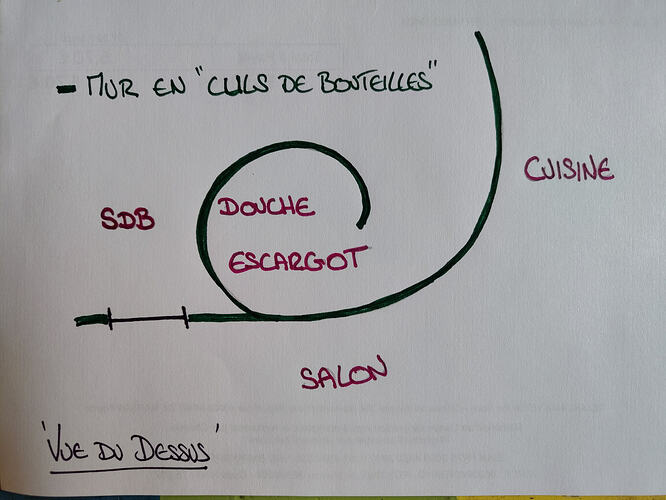 - MUR EN "CULS DE BOUTEILLES"
CUISINE
SDB
DOUCHE
ESCARGOT
SALON
'VUE DU DESSUS'